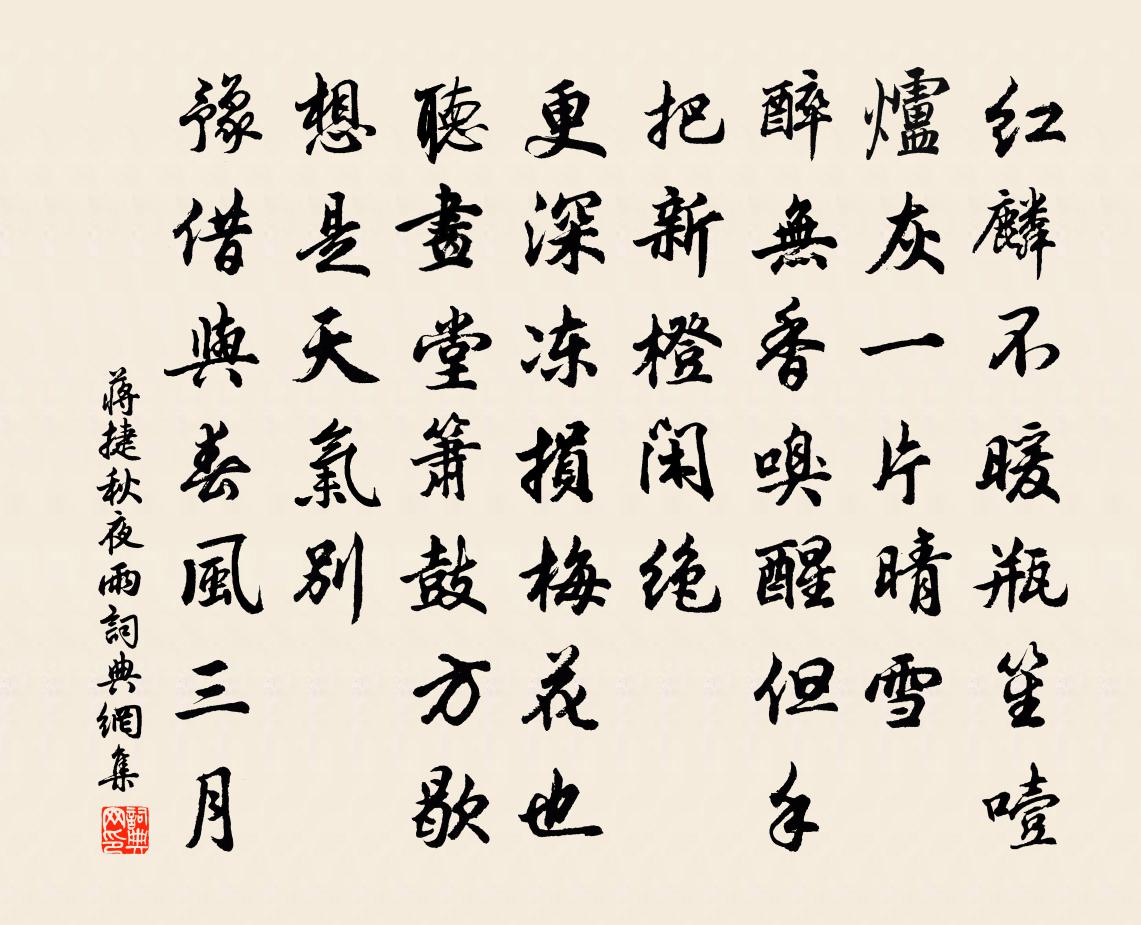 红麟不暖瓶笙噎
爐灰一片晴雪
醉無香嗅醒但手
把新橙闲绝
更深冻損梅花也
聽畫堂箫鼓方歇
想是天氣別
豫借與春風三月
蔣捷秋夜雨詞典網集
詞典网印